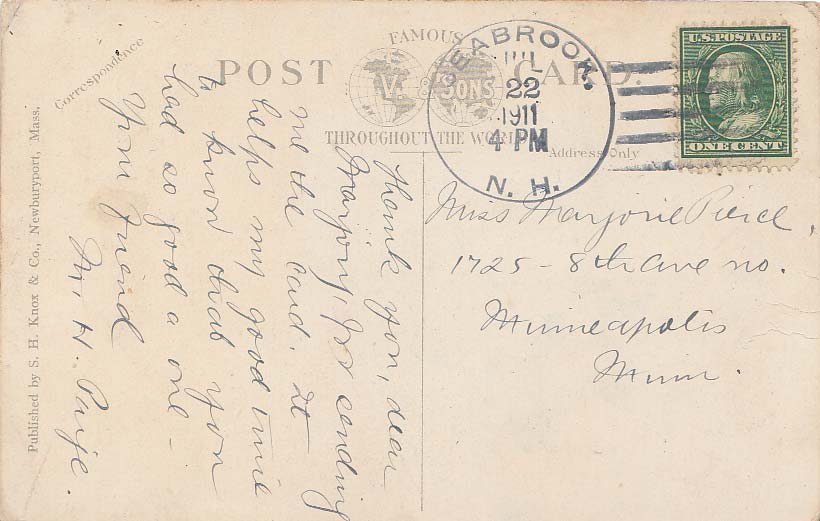 Correspondence
POST CARD.
FAMOUS
V. & SONS
THROUGHOUT THE WORLD
Address Only
SEABROOK.
JUL
22
1911
4 PM
N. H.
U.S. POSTAGE
ONE CENT
Thank you, dear
Marjory, for sending
me the card. It
helps my good time
to know that you
had so good a one –
Your friend
M. H. Paige.
Miss Marjorie Pierce,
1725 - 8th Ave no.
Minneapolis
Minn.
Published by S. H. Knox & Co., Newburyport, Mass.